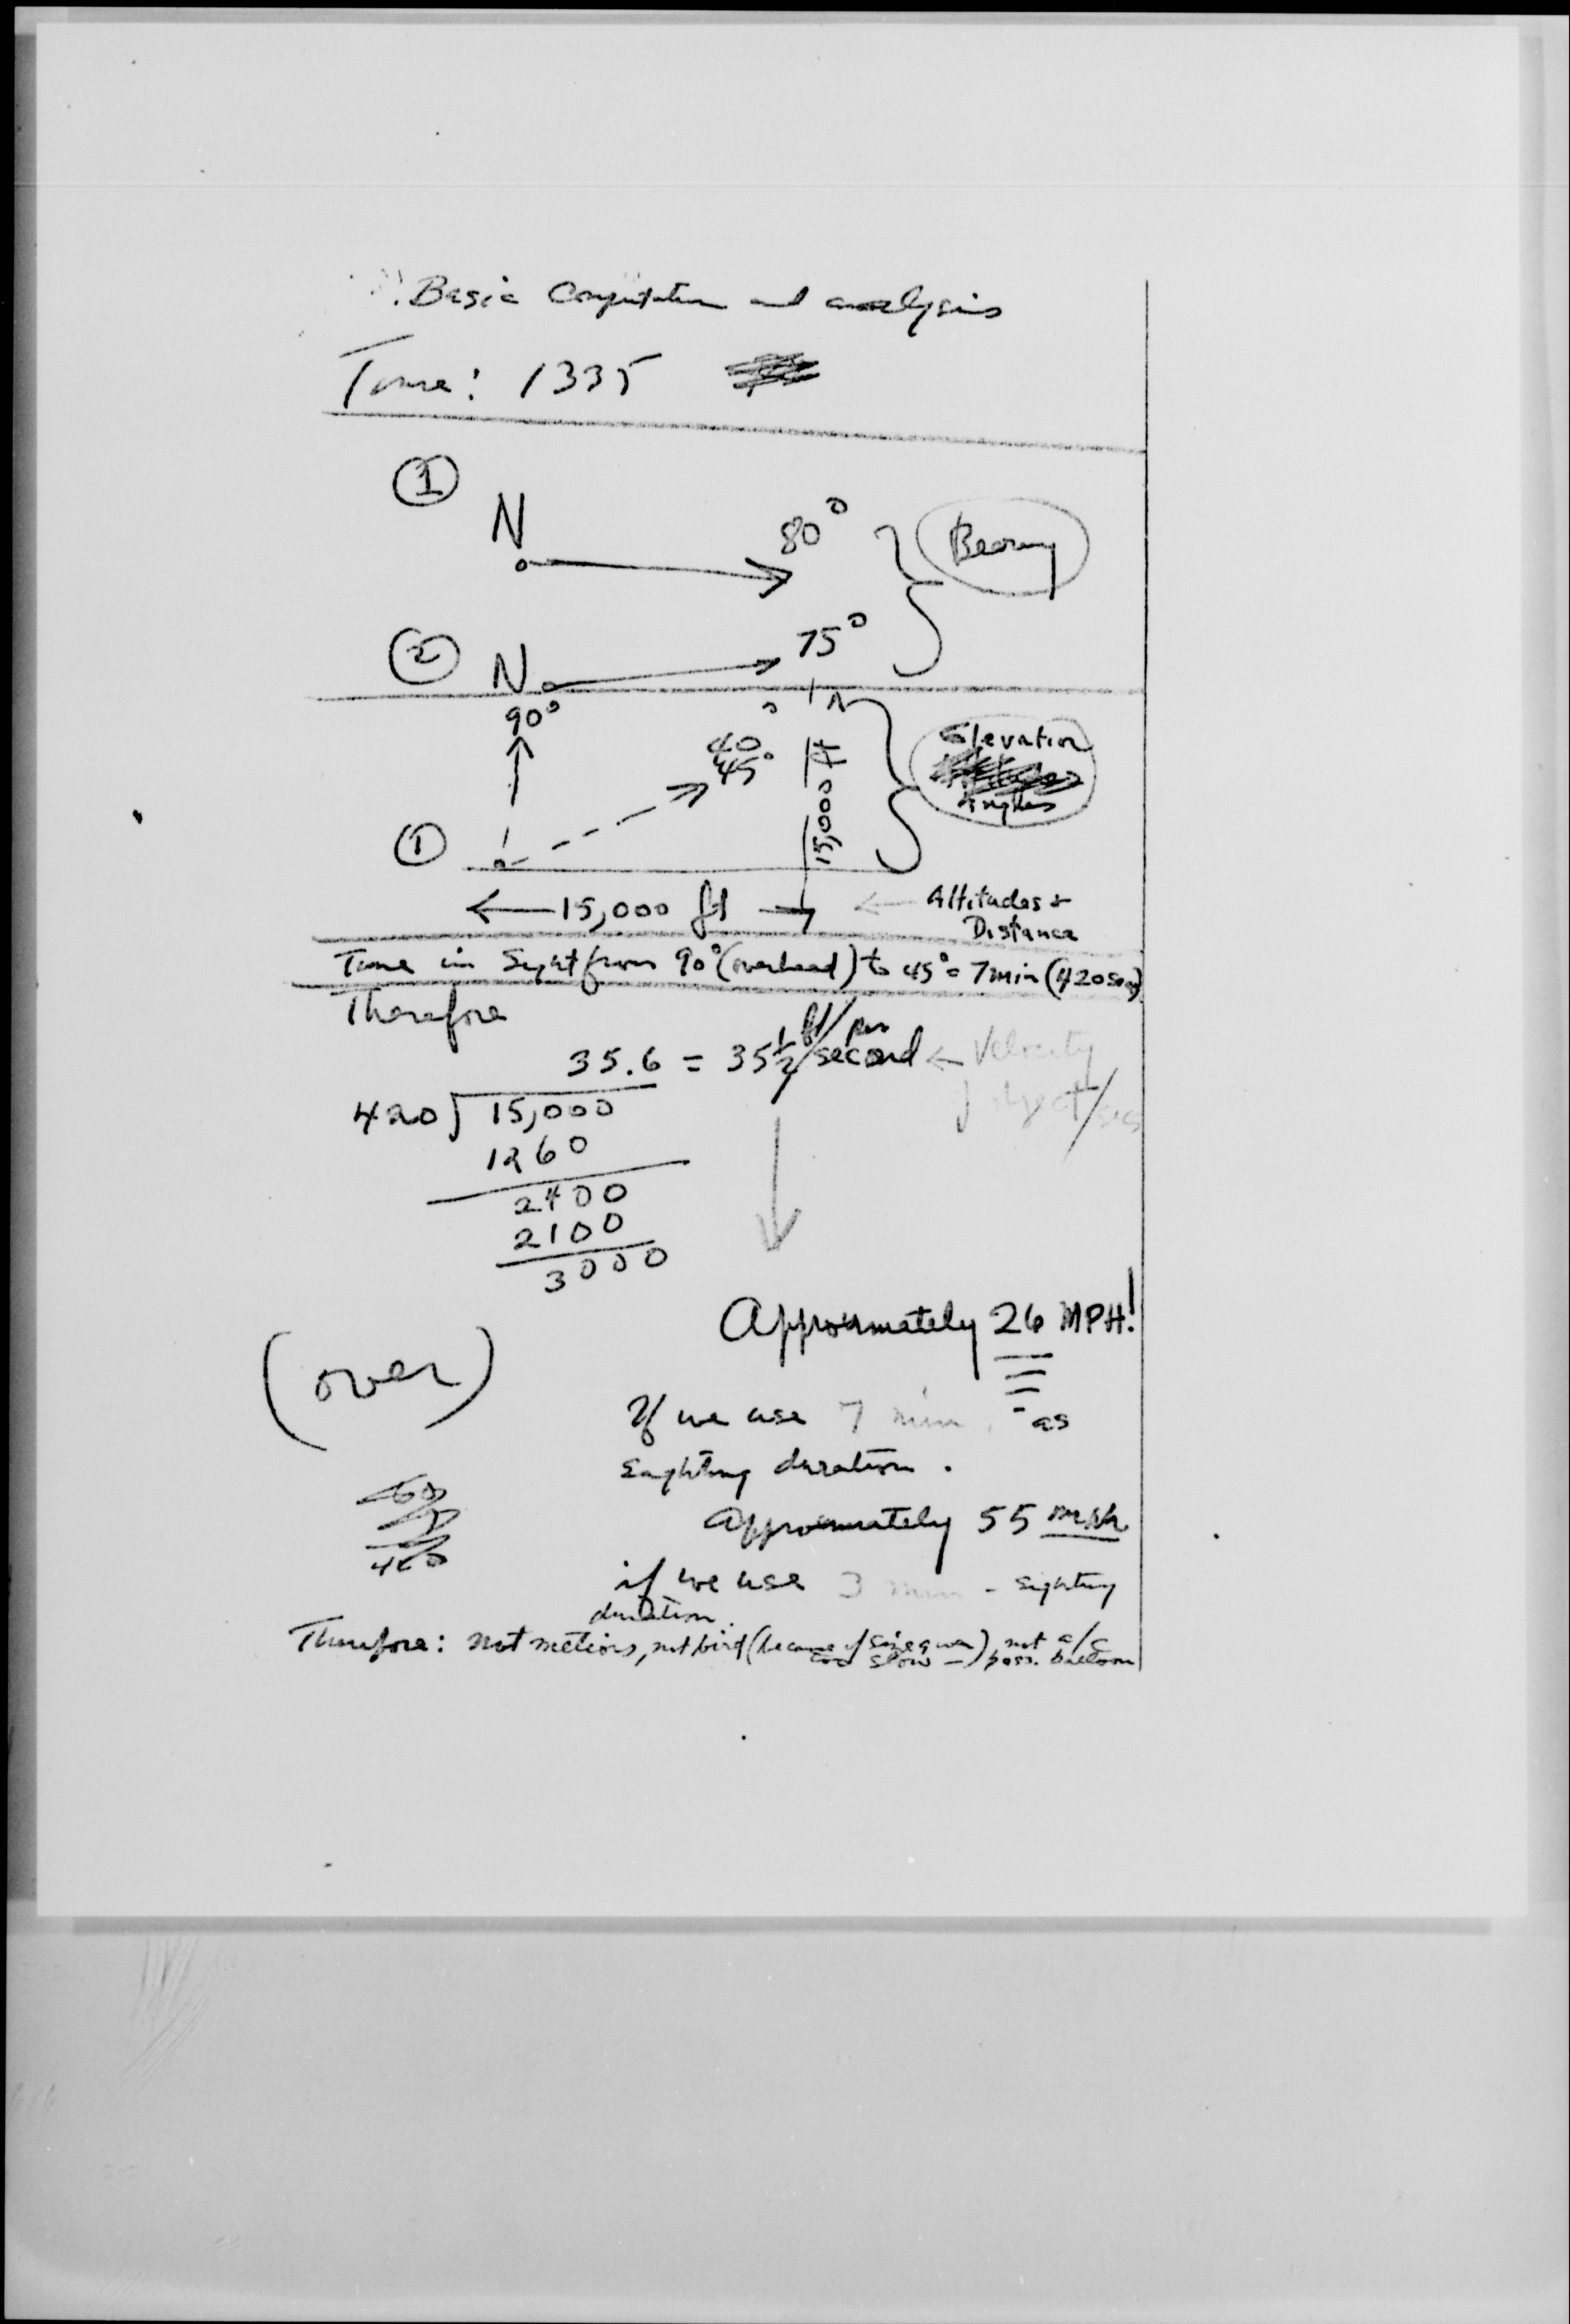 Basic Computation and analysis
Time: 1335
1
N 80° Bearing
2 N 75°
90°
40
45° 15,000 ft Elevation
Angles
1
15,000 ft Altitudes +
Distance
Time in Sight from 90° (overhead) to 45° = 7 min (420 sec)
Therefore
35.6 = 35 1/2 ft/per second ← Velocity
420 15,000 object/sec
1260
2400
2100
3000
Approximately 26 MPH!
(over)
If we use 7 min. as
sighting duration.
Approximately 55 mph
if we use 3 min - sighting
duration.
Therefore: not meteors, not bird (because of size given), not a/c
too slow - poss. balloon